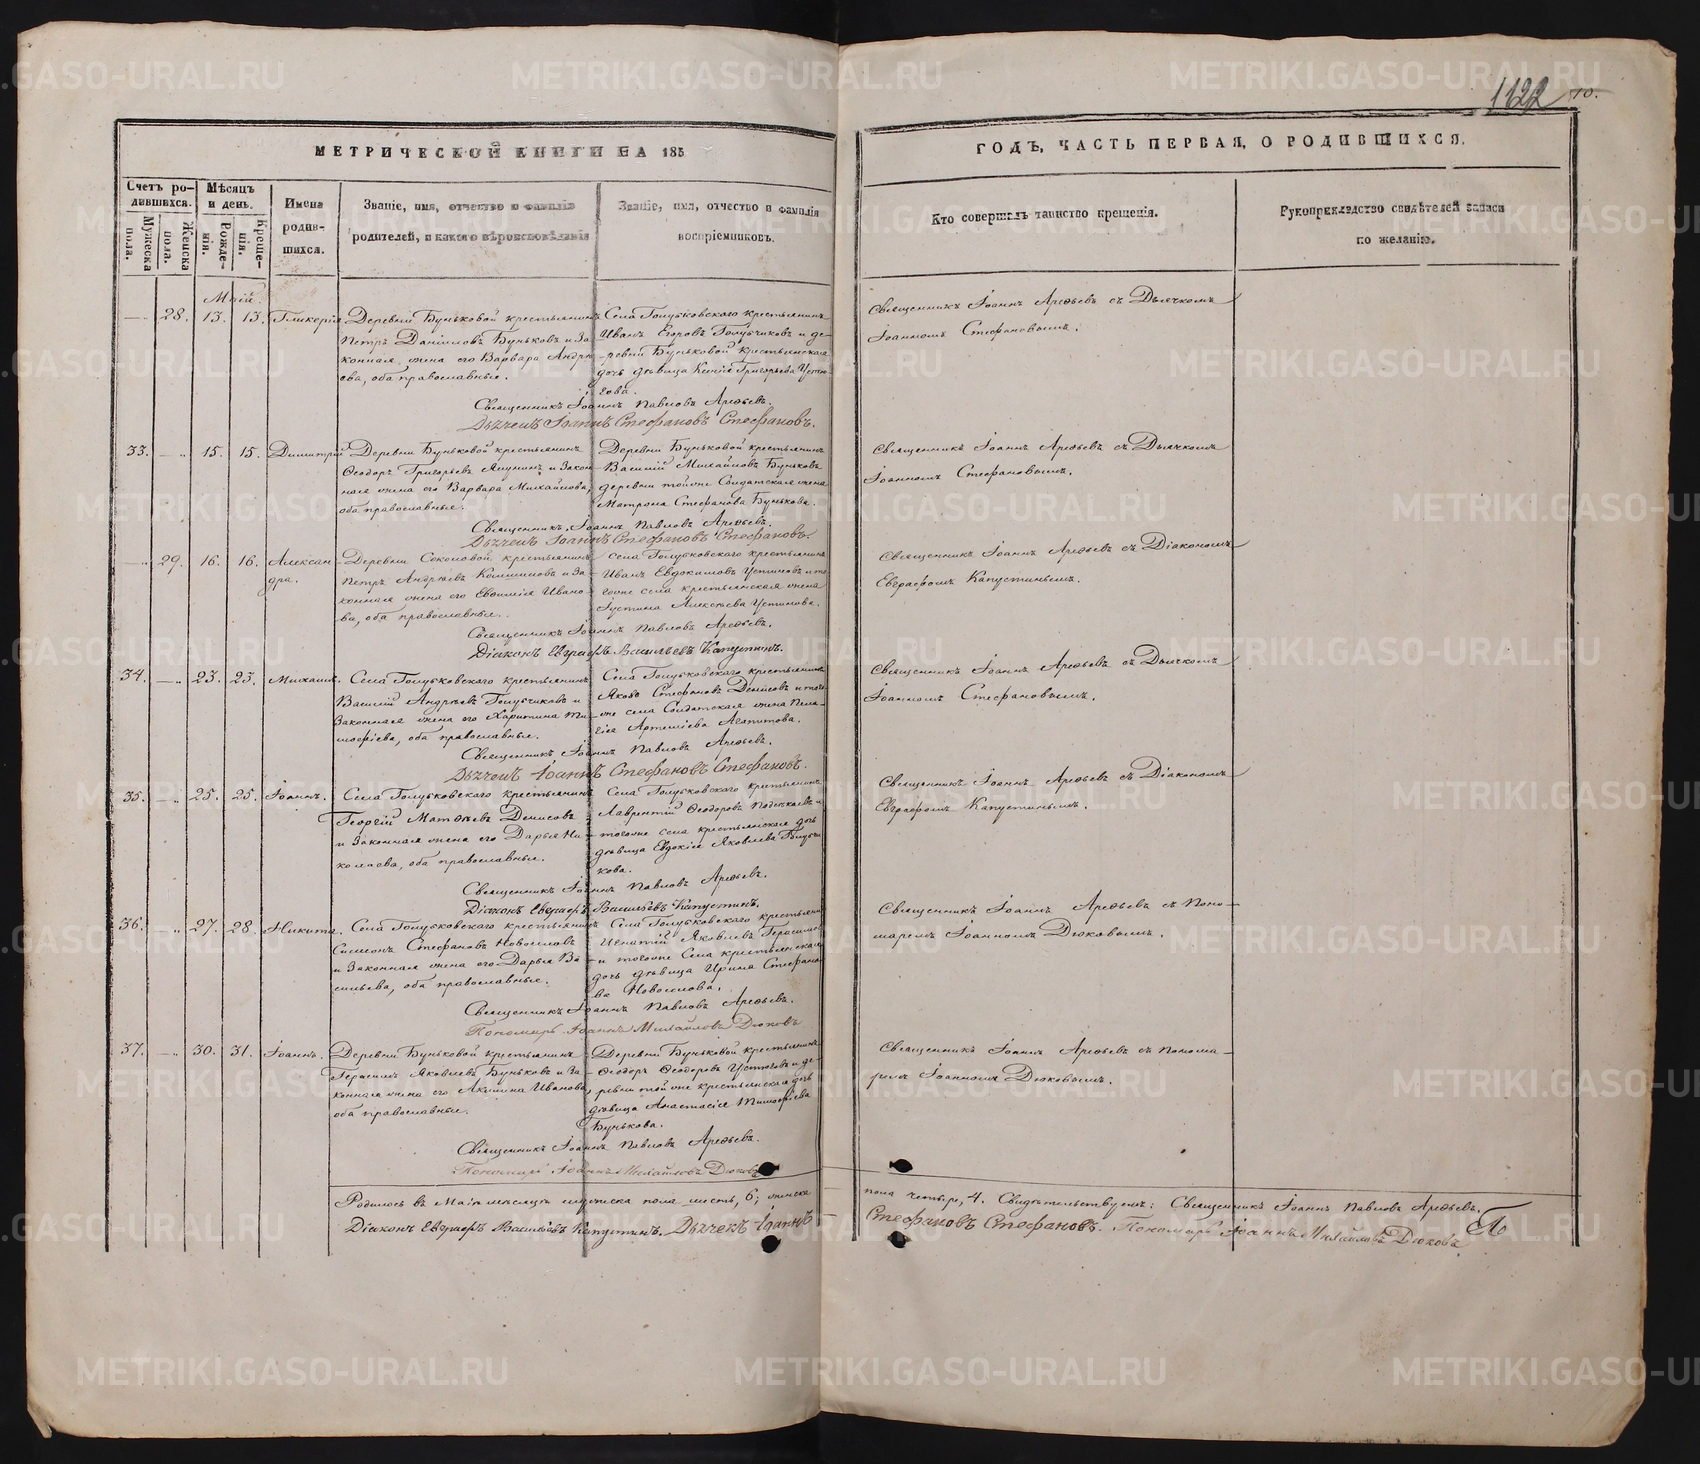 1122 10.
МЕТРИЧЕСКОЙ КНИГИ НА 185
ГОДЪ, ЧАСТЬ ПЕРВАЯ, О РОДИВШИХСЯ.
Счетъ ро-
дившихся.
Мужеска
пола.
Женска
пола.
Мѣсяцъ
и день.
Рожде-
нія.
Креще-
нія.
Имена
родив-
шихся.
Званіе, имя, отчество и фамилія
родителей, и какого вѣроисповѣданія
Званіе, имя, отчество и фамилія
воспріемниковъ.
Кто совершалъ таинство крещенія.
Рукоприкладство свидѣтелей записи
по желанію.
Май.
28. 13. 13. Гликерія
Деревни Буньковой крестьянинъ
Петръ Даниловъ Буньковъ и за-
конная жена его Варвара Андре-
ева, оба православные.
Села Голубковскаго крестьянинъ
Иванъ Егоровъ Голубчиковъ и де-
ревни Буньковой крестьянская
дочь дѣвица Ксенія Григорьева
Священникъ Іоаннъ Арефьевъ съ Дьячкомъ
Іоанномъ Стефановымъ.
Священникъ Іоаннъ Павловъ Арефьевъ.
Дьячекъ Іоаннъ Стефановъ Стефановъ.
33. 15. 15. Димитрій
Деревни Буньковой крестьянинъ
Ѳеодоръ Григорьевъ и закон-
ная жена его Варвара Михайлова,
оба православные.
Деревни Буньковой крестьянинъ
Василій Михайловъ Буньковъ
деревни тойже Солдатская жена
Матрона Стефанова Бунькова.
Священникъ Іоаннъ Арефьевъ съ Дьячкомъ
Іоанномъ Стефановымъ.
Священникъ Іоаннъ Павловъ Арефьевъ.
Дьячекъ Іоаннъ Стефановъ Стефановъ.
29. 16. 16. Алексан-
дра.
Деревни Соколовой крестьянинъ
Петръ Андреевъ и за-
конная жена его Евфимія Ивано-
ва, оба православные.
Села Голубковскаго крестьянинъ
Иванъ Евдокимовъ Устиновъ и то-
гоже села крестьянская жена
Іустина Алексѣева Устинова.
Священникъ Іоаннъ Арефьевъ съ Діакономъ
Евграфомъ Капустинымъ.
Священникъ Іоаннъ Павловъ Арефьевъ.
Діаконъ Евграфъ Васильевъ Капустинъ.
34. 23. 23. Михаилъ.
Села Голубковскаго крестьянинъ
Василій Андреевъ Голубчиковъ и
законная жена его Харитина Ти-
мофѣева, оба православные.
Села Голубковскаго крестьянинъ
Яковъ Стефановъ Денисовъ и того-
же села Солдатская жена Пела-
гія Артемьева Агапитова.
Священникъ Іоаннъ Арефьевъ съ Дьячкомъ
Іоанномъ Стефановымъ.
Священникъ Іоаннъ Павловъ Арефьевъ.
Дьячекъ Іоаннъ Стефановъ Стефановъ.
35. 25. 25. Іоаннъ.
Села Голубковскаго крестьянинъ
Георгій Матвѣевъ Денисовъ
и законная жена его Дарья Ни-
колаева, оба православные.
Села Голубковскаго крестьянинъ
Лаврентій Ѳеодоровъ и
тогоже села крестьянская дочь
дѣвица Евдокія Яковлева
кова.
Священникъ Іоаннъ Арефьевъ съ Діакономъ
Евграфомъ Капустинымъ.
Священникъ Іоаннъ Павловъ Арефьевъ.
Діаконъ Евграфъ Васильевъ Капустинъ.
36. 27. 28. Никита.
Села Голубковскаго крестьянинъ
Симеонъ Стефановъ Новоселовъ
и законная жена его Дарья Ва-
сильева, оба православные.
Села Голубковскаго крестьянинъ
Игнатій Яковлевъ Герасимовъ
и тогоже Села крестьянская
дочь дѣвица Ирина Стефано-
ва Новоселова.
Священникъ Іоаннъ Арефьевъ съ Поно-
маремъ Іоанномъ Дюковымъ.
Священникъ Іоаннъ Павловъ Арефьевъ.
Пономарь Іоаннъ Михайловъ Дюковъ
37. 30. 31. Іоаннъ.
Деревни Буньковой крестьянинъ
Герасимъ Яковлевъ Буньковъ и за-
конная жена его Акилина Иванова,
оба православные.
Деревни Буньковой крестьянинъ
Ѳеодоръ Ѳеодоровъ Устюговъ и де-
ревни тойже крестьянская дочь
дѣвица Анастасія Тимофѣева
Бунькова.
Священникъ Іоаннъ Арефьевъ съ Понома-
ремъ Іоанномъ Дюковымъ.
Священникъ Іоаннъ Павловъ Арефьевъ.
Пономарь Іоаннъ Михайловъ Дюковъ
Родилось въ Маѣ мѣсяцѣ мужеска пола шесть, 6; женска
пола четыре, 4. Свидѣтельствуемъ: Священникъ Іоаннъ Павловъ Арефьевъ.
Діаконъ Евграфъ Васильевъ Капустинъ. Дьячекъ Іоаннъ
Стефановъ Стефановъ. Пономарь Іоаннъ Михайловъ Дюковъ
METRIKI.GASO-URAL.RU